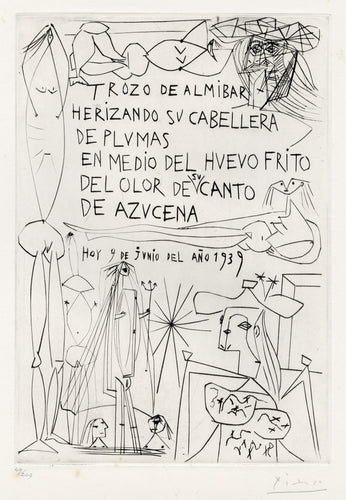 TROZO DE ALMIBAR
HERIZANDO SU CABELLERA
DE PLUMAS
EN MEDIO DEL HUEVO FRITO
DEL OLOR DE SU CANTO
DE AZUCENA
HOY 9 DE JUNIO DEL AÑO 1939
Picasso